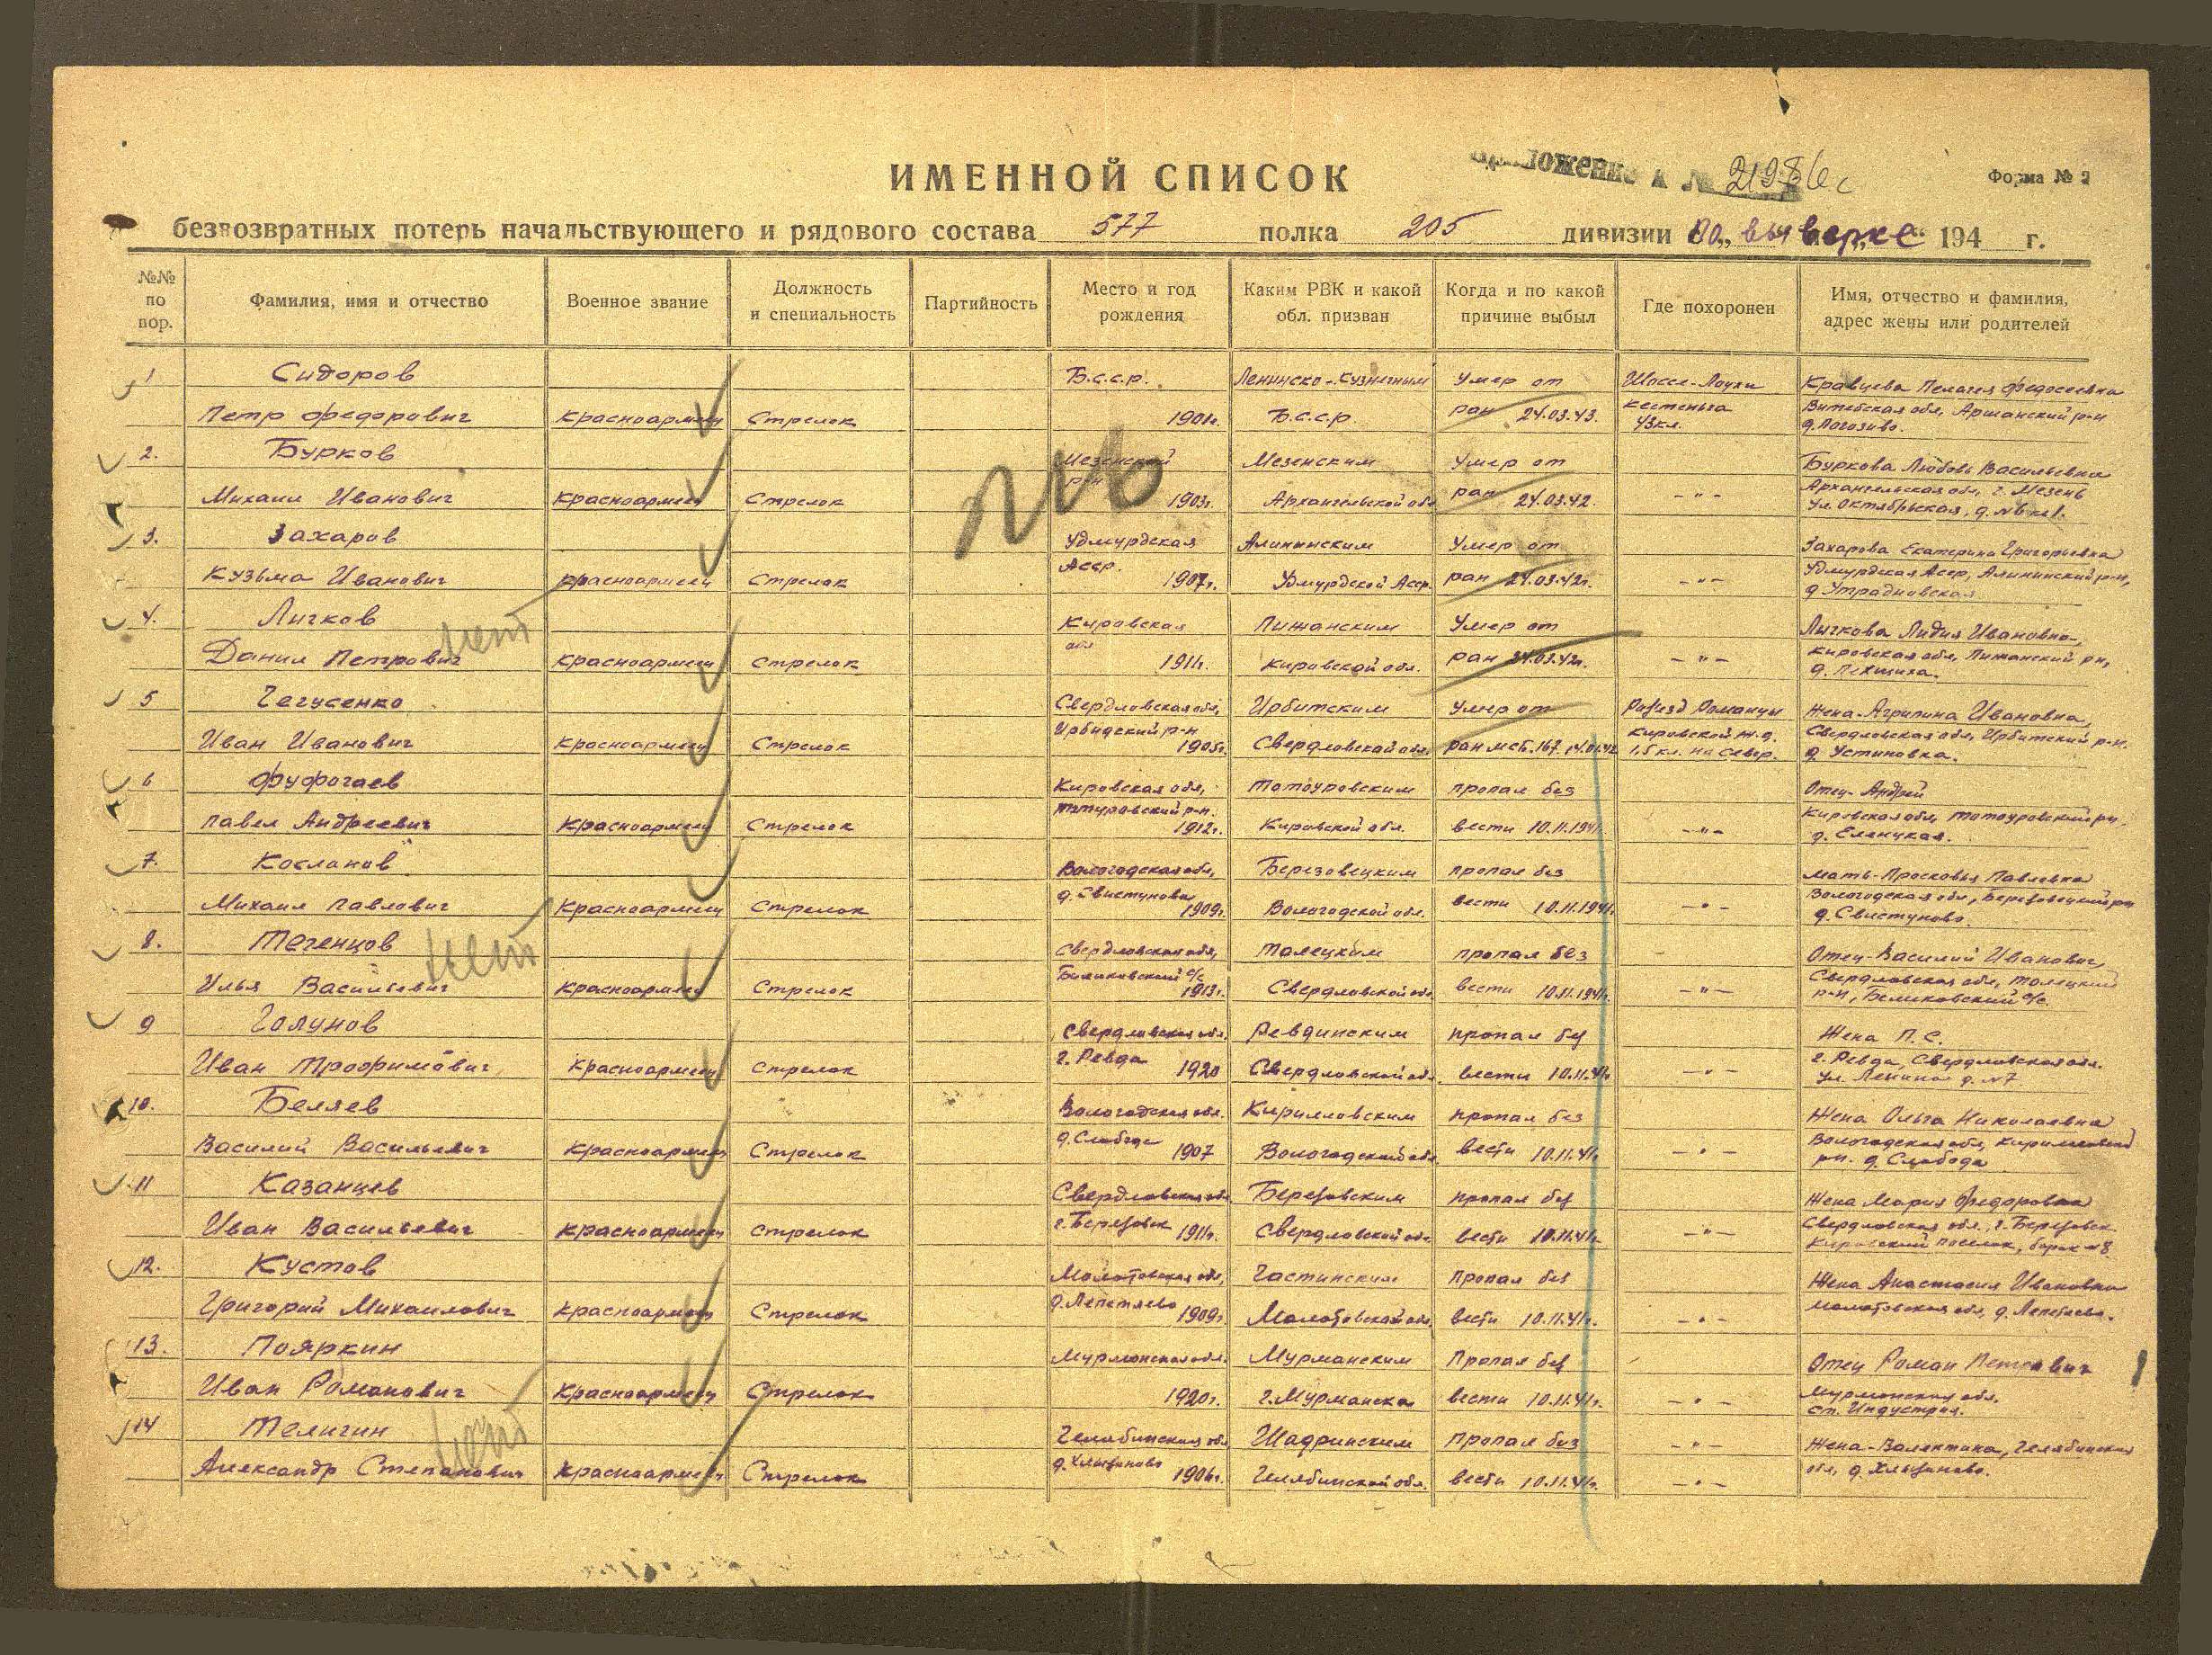 ИМЕННОЙ СПИСОК
Приложение к № 21986с
Форма № 2
безвозвратных потерь начальствующего и рядового состава 577 полка 205 дивизии По выверке 194 г.
№№ по пор.
Фамилия, имя и отчество
Военное звание
Должность и специальность
Партийность
Место и год рождения
Каким РВК и какой обл. призван
Когда и по какой причине выбыл
Где похоронен
Имя, отчество и фамилия, адрес жены или родителей
1 Сидоров Б.С.С.Р. Ленинско-Кузнечным Умер от Шоссе-Лоухи Кравцева Пелагея Федосеевна
Петр Федорович Красноармеец Стрелок 1901г. Б.С.С.Р ран 24.03.43. Кестеньга Витебская обл, Аршанский р-н
43кл. д. Погозиво.
2. Бурков Мезенской Мезенским Умер от Буркова Любовь Васильевна
Михаил Иванович Красноармеец Стрелок р-н 1903г. Архангельской обл ран 24.03.42. -"- Архангельская обл, г. Мезень
ул. Октябрьская, д. №6 кв 1.
3. Захаров Удмурдская Алнинским Умер от Захарова Екатерина Григорьевна
Кузьма Иванович Красноармеец Стрелок Асср. 1907г. Удмурдской Асср. ран 24.03.42г. -"- Удмурдская Асср, Алнинский р-н,
4. Лычков Кировская Пижанским Умер от Лычкова Лидия Ивановна,
нет
Данил Петрович Красноармеец Стрелок обл 1911г. Кировской обл. ран 24.03.42г. -"- Кировская обл, Пижанский рн,
5 Чегусенко Свердловская обл, Ирбитским Умер от Разъезд Ломанцы Жена-Агрипина Ивановна,
Иван Иванович Красноармеец Стрелок Ирбидский р-н 1905г. Свердловской обл. ран мсб.167. Кировской ж.д. Свердловская обл, Ирбитский р-н.
1,5 кл. на север. д Устиновка.
6 Фуфочаев Кировская обл, Татауровским пропал без Отец-Андрей
Павел Андреевич Красноармеец Стрелок 1912г. Кировской обл. вести 10.11.1941г. -"- Кировская обл, Татауровский рн.
д. Еленцкая.
7. Косланов Вологодская обл, Березовецким пропал без мать-Просковья Павловна
Михаил Павлович Красноармеец Стрелок д. Свистуново 1909г. Вологодской обл. вести 10.11.1941г. -"- Вологодская обл, Березовецкий рн
д. Свистуново.
8. Тегенцов Свердловская обл, Талецким пропал без Отец-Василий Иванович,
нет
Илья Васильевич Красноармеец Стрелок Беликовский с/с 1913г. Свердловской обл. вести 10.11.1941г. -"- Свердловская обл, Талецкий
р-н, Беликовский с/с.
9 Голунов Свердловская обл. Ревдинским пропал без Жена П.С.
Иван Трофимович Красноармеец Стрелок г. Ревда 1920 Свердловской обл. вести 10.11.41г -"- г. Ревда, Свердловская обл.
ул. Ленина д. №7
10. Беляев Вологодская обл. Кирилловским пропал без Жена Ольга Николаевна
Василий Васильевич Красноармеец Стрелок д. Слобода 1907 Вологодской обл. вести 10.11.41г -"- Вологодская обл, Кирилловский
рн. д. Слобода
11 Казанцев Свердловская обл. Березовским пропал без Жена Мария Федоровна
Иван Васильевич Красноармеец Стрелок г. Березовск 1911г. Свердловской обл. вести 10.11.41г -"- Свердловская обл. г. Березовск
Кировский поселок, барак №8
12. Кустов Молотовская обл, Частинским Пропал без Жена Анастасия Ивановна
Григорий Михаилович Красноармеец Стрелок д. Лепетяево 1909г Молотовской обл. вести 10.11.41г. -"- Молотовская обл, д. Лепетяево.
13. Пояркин Мурманская обл. Мурманским Пропал без Отец Роман Петрович
Иван Романович Красноармеец Стрелок 1920г. г. Мурманска вести 10.11.41г. -"- Мурманская обл.
ст. Индустрия.
14 Телигин Челябинская обл Шадринским Пропал без -"- Жена-Валентина, Челябинская
нет
Александр Степанович Красноармеец Стрелок д. Хлызиново 1906г. Челябинской обл. вести 10.11.41г. -"- обл, д. Хлызиново.